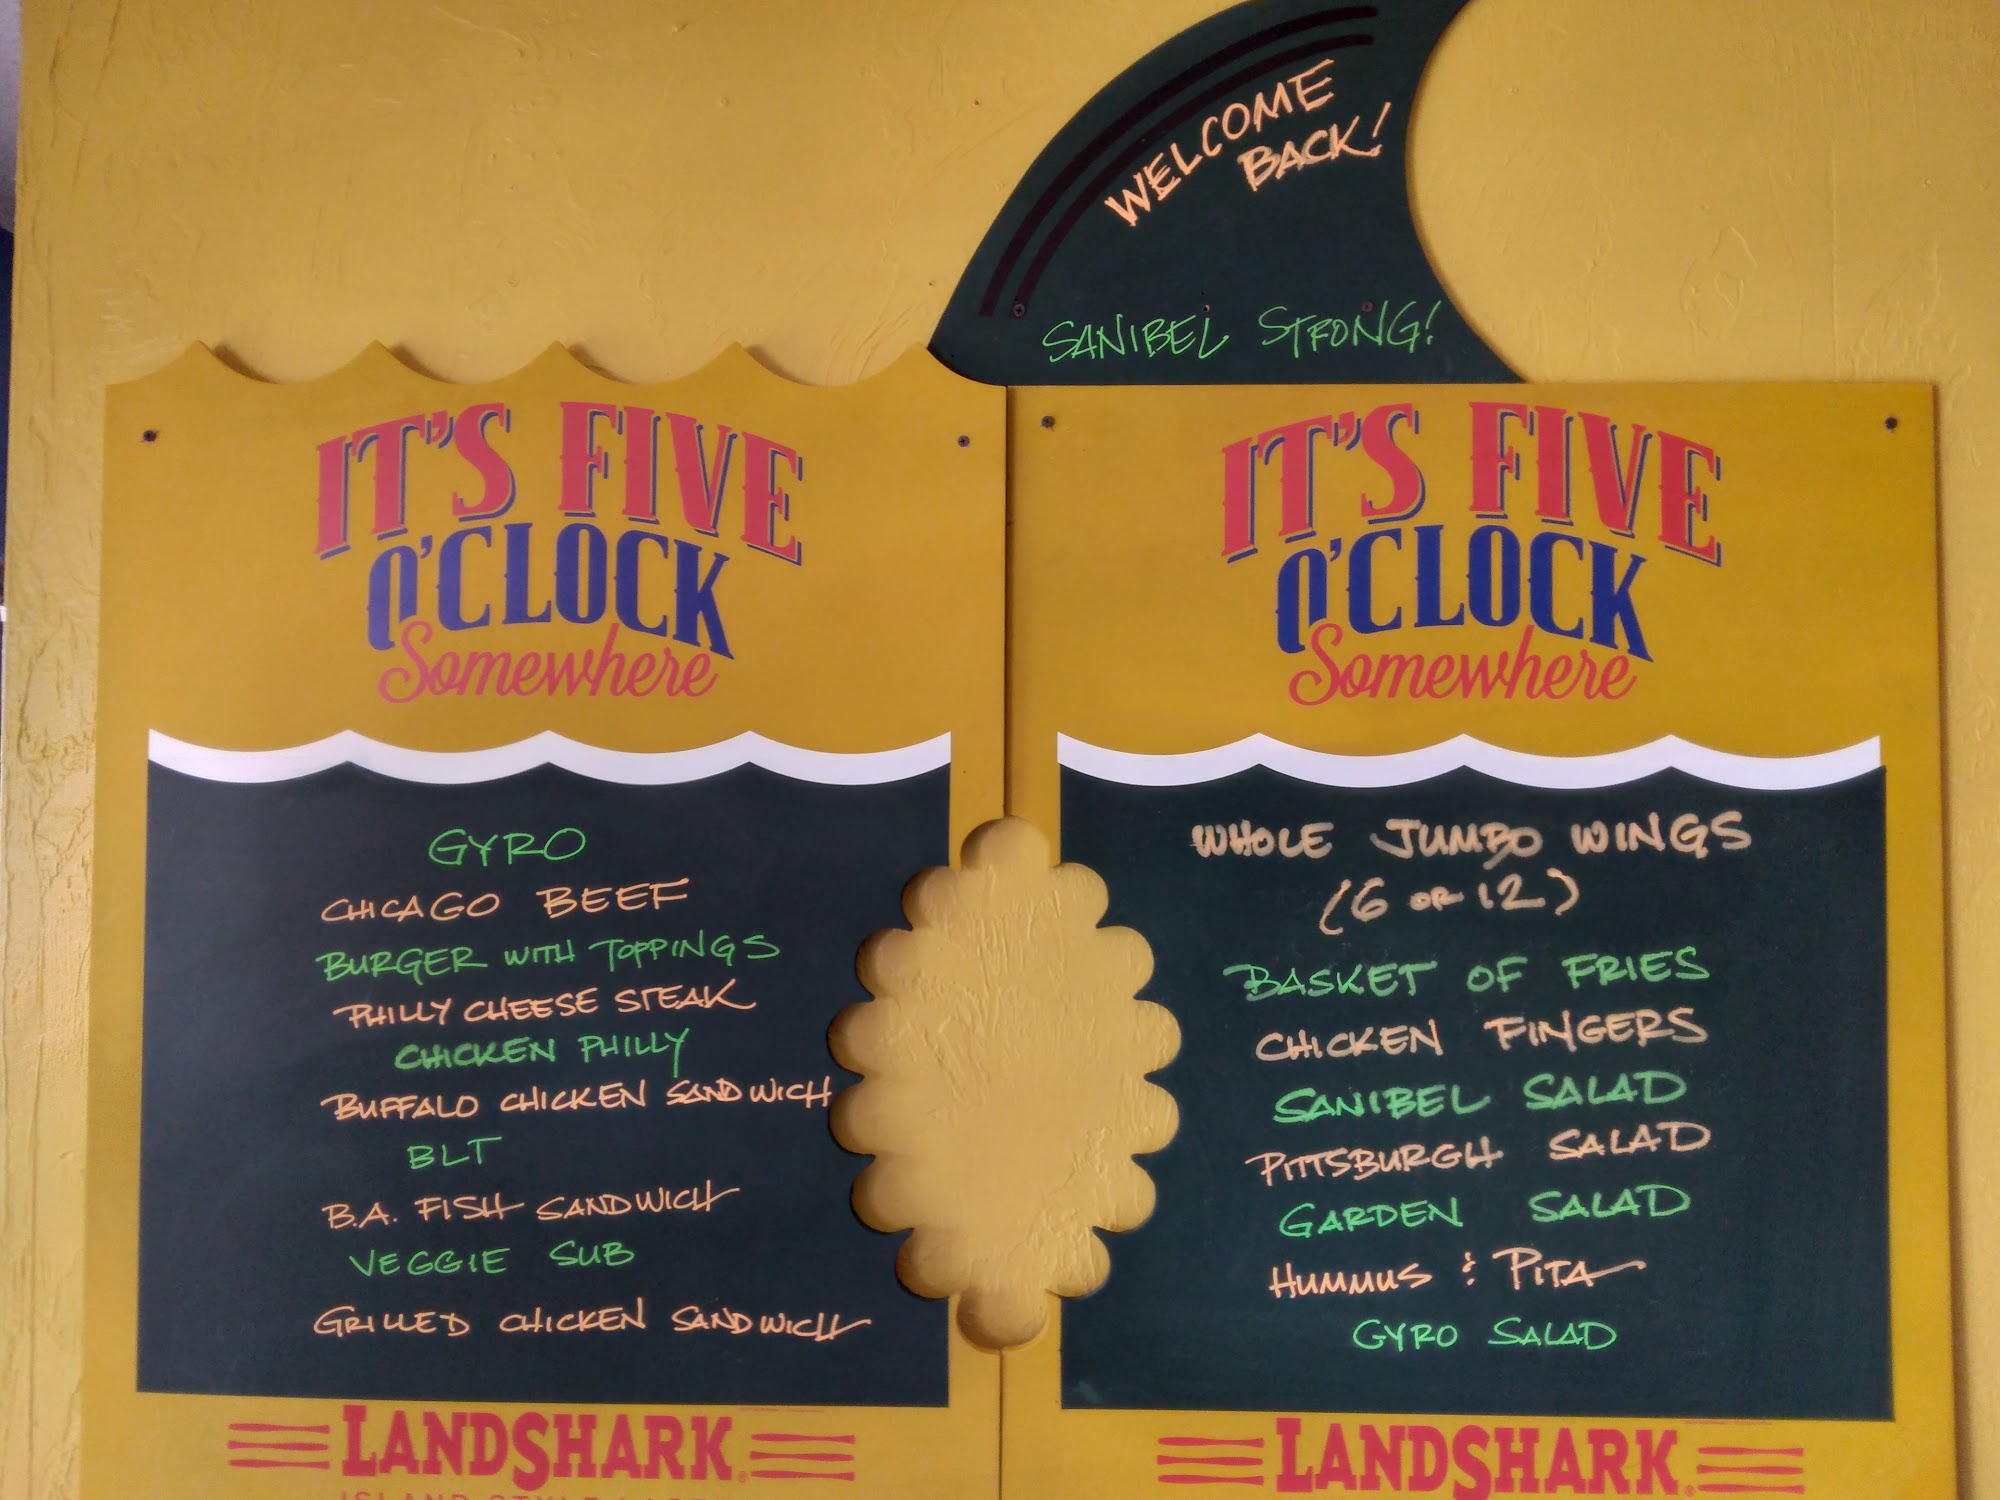 WELCOME
BACK!
SANIBEL STRONG!
IT'S FIVE
O'CLOCK
Somewhere
GYRO
CHICAGO BEEF
BURGER WITH TOPPINGS
PHILLY CHEESE STEAK
CHICKEN PHILLY
BUFFALO CHICKEN SANDWICH
BLT
B.A. FISH SANDWICH
VEGGIE SUB
GRILLED CHICKEN SANDWICH
LANDSHARK
IT'S FIVE
O'CLOCK
Somewhere
WHOLE JUMBO WINGS
(6 OR 12)
BASKET OF FRIES
CHICKEN FINGERS
SANIBEL SALAD
PITTSBURGH SALAD
GARDEN SALAD
HUMMUS & PITA
GYRO SALAD
LANDSHARK